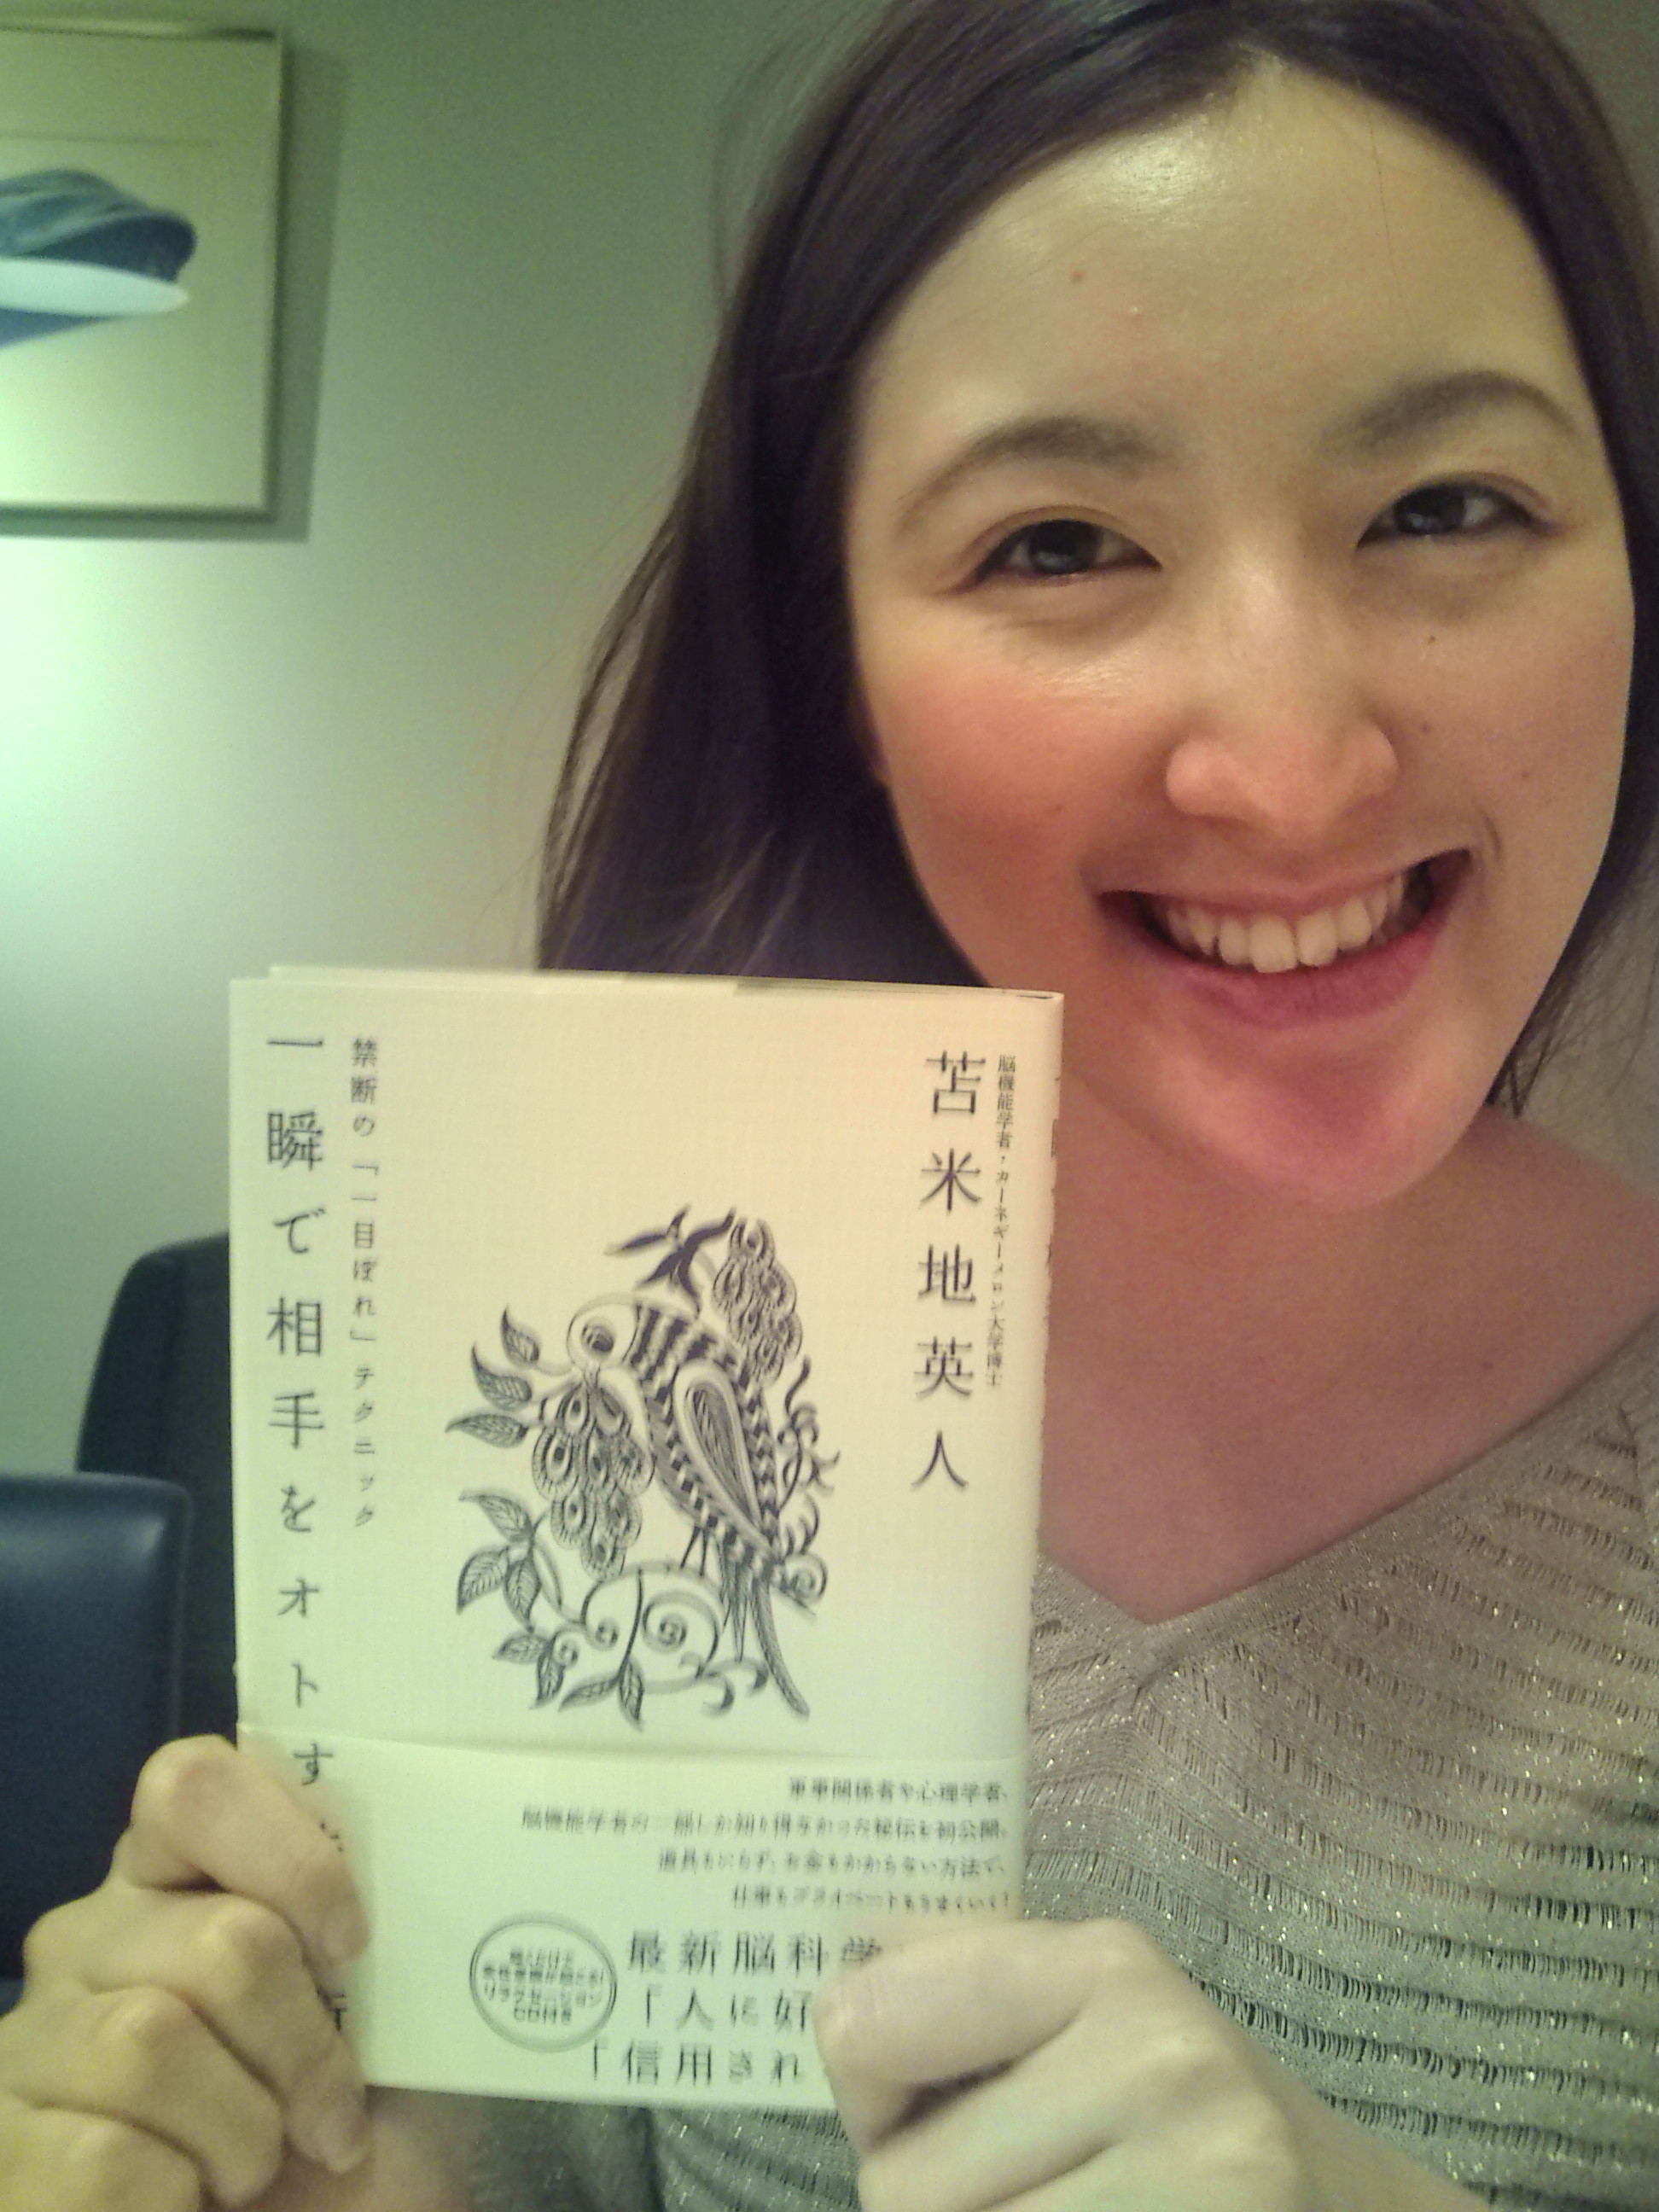 脳機能学者・カーネギーメロン大学博士
苫米地英人
禁断の「一目ぼれ」テクニック
一瞬で相手をオトす
軍事関係者や心理学者、
脳機能学者の一部しか知り得なかった秘伝を初公開。
道具もいらず、お金もかからない方法で、
仕事もプライベートもうまくいく!
最新脳科学
「人に好
「信用され
CD付き